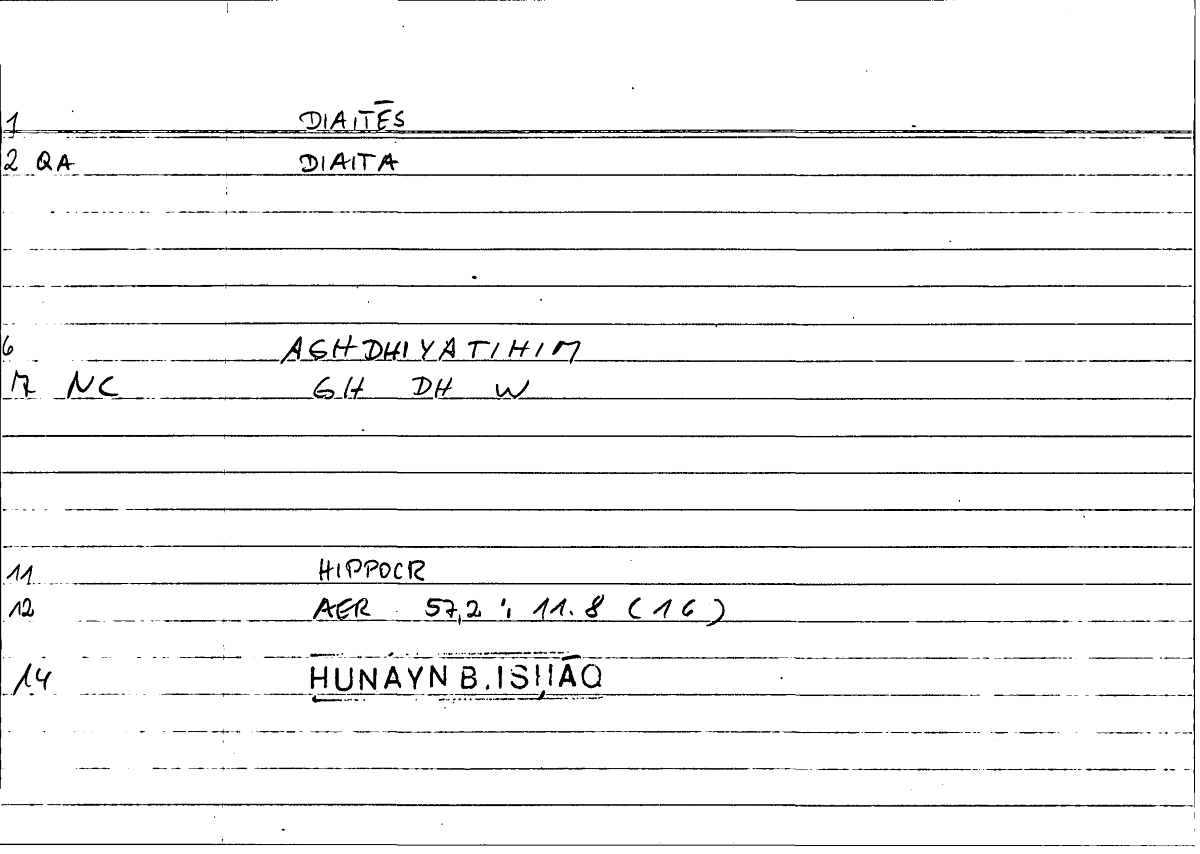 1 DIAITĒS
2 QA DIAITA
6 AGHDHIYATIHIM
17 NC GH DH W
11 HIPPOCR
12 AER 57,2 ; 11.8 (16)
14 HUNAYN B. ISḤĀQ